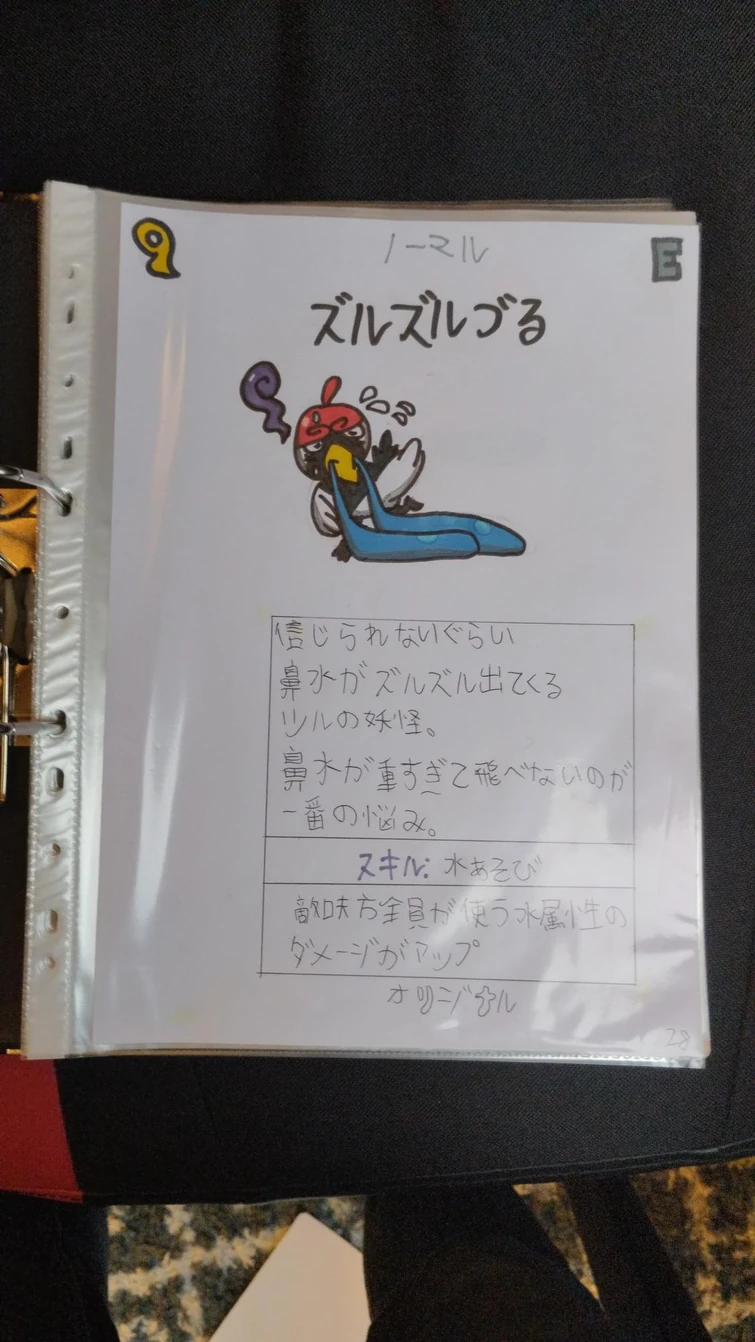 ノーマル
E
ズルズルづる
信じられないぐらい
鼻水がズルズル出てくる
ツルの妖怪。
鼻水が重すぎて飛べないのが
一番の悩み。
スキル: 水あそび
敵味方全員が使う水属性の
ダメージがアップ
オリジナル
28